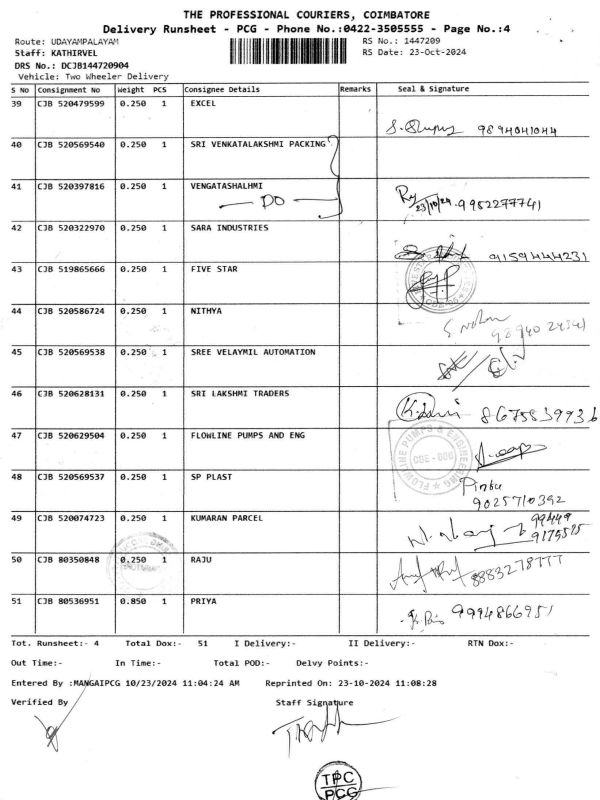 THE PROFESSIONAL COURIERS, COIMBATORE
Delivery Runsheet - PCG - Phone No.:0422-3505555 - Page No.:4
Route: UDAYAMPALAYAM RS No.: 1447209
Staff: KATHIRVEL RS Date: 23-Oct-2024
DRS No.: DCJB144720904
Vehicle: Two Wheeler Delivery
S No Consignment No Weight PCS Consignee Details Remarks Seal & Signature
39 CJB 520479599 0.250 1 EXCEL
9894041044
40 CJB 520569540 0.250 1 SRI VENKATALAKSHMI PACKING
41 CJB 520397816 0.250 1 VENGATASHALHMI
DO
23/10/24 9952277741
42 CJB 520322970 0.250 1 SARA INDUSTRIES
9159444231
43 CJB 519865666 0.250 1 FIVE STAR
44 CJB 520586724 0.250 1 NITHYA
45 CJB 520569538 0.250 1 SREE VELAYMIL AUTOMATION
46 CJB 520628131 0.250 1 SRI LAKSHMI TRADERS
8675839936
47 CJB 520629504 0.250 1 FLOWLINE PUMPS AND ENG
FLOWLINE PUMPS & ENGINEERING
CBE - 006
48 CJB 520569537 0.250 1 SP PLAST
9025710392
49 CJB 520074723 0.250 1 KUMARAN PARCEL
99449
9175575
50 CJB 80350848 0.250 1 RAJU
8883278777
51 CJB 80536951 0.850 1 PRIYA
9994866951
Tot. Runsheet:- 4 Total Dox:- 51 I Delivery:- II Delivery:- RTN Dox:-
Out Time:- In Time:- Total POD:- Delvy Points:-
Entered By :MANGAIPCG 10/23/2024 11:04:24 AM Reprinted On: 23-10-2024 11:08:28
Verified By Staff Signature
TPC
PCG